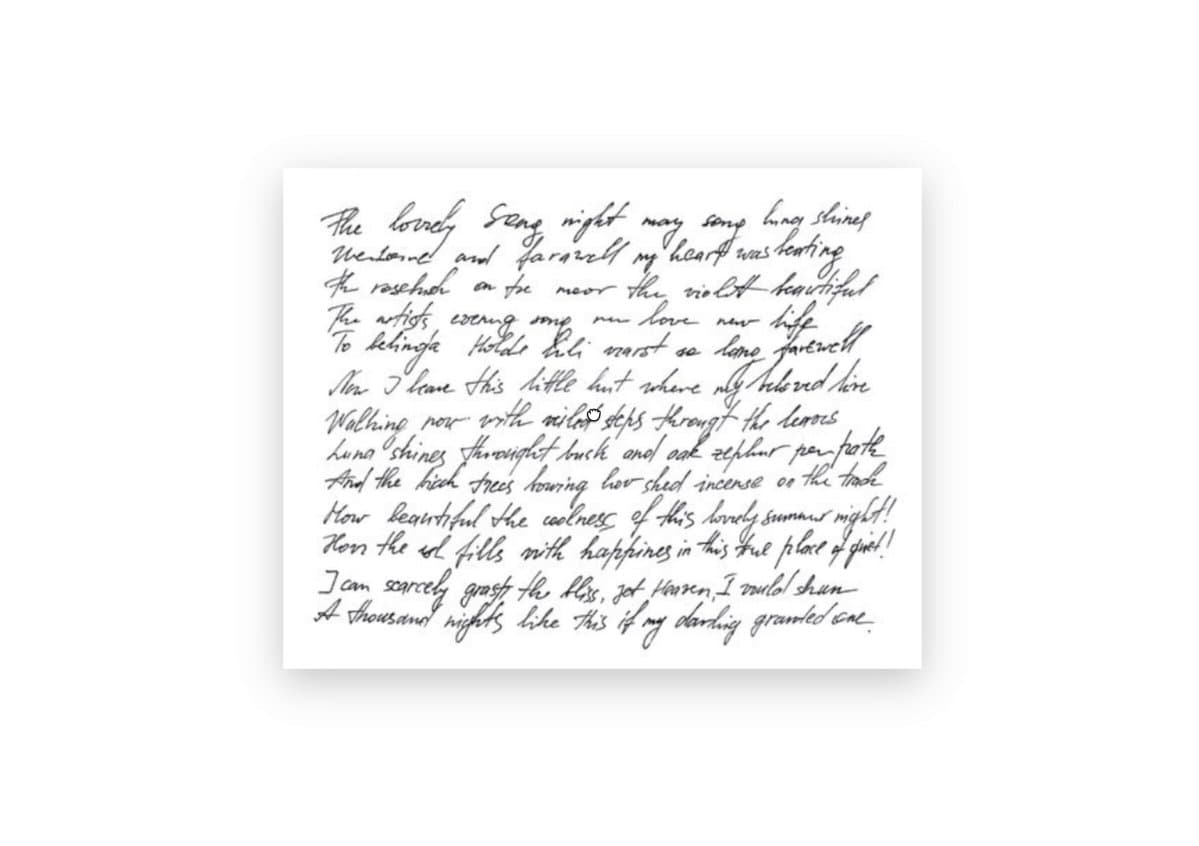 The lovely Song night may song luna shines
Welcome and farawell my heart was beating
The rosebush on the moor the violett beautiful
The artists evening song new love new life
To belinda Holde Lili warst so long farewell
Now I leave this little hut where my beloved live
Walking now with veiled steps througt the leaves
Luna shines throught bush and oak zephyr per path
And the birch trees bowing low shed incense on the track
How beautiful the coolness of this lovely summer night!
How the soul fills with happiness in this true place of quiet!
I can scarcely grasp the bliss, yet Heaven, I would shun
A thousand nights like this if my darling granted one.